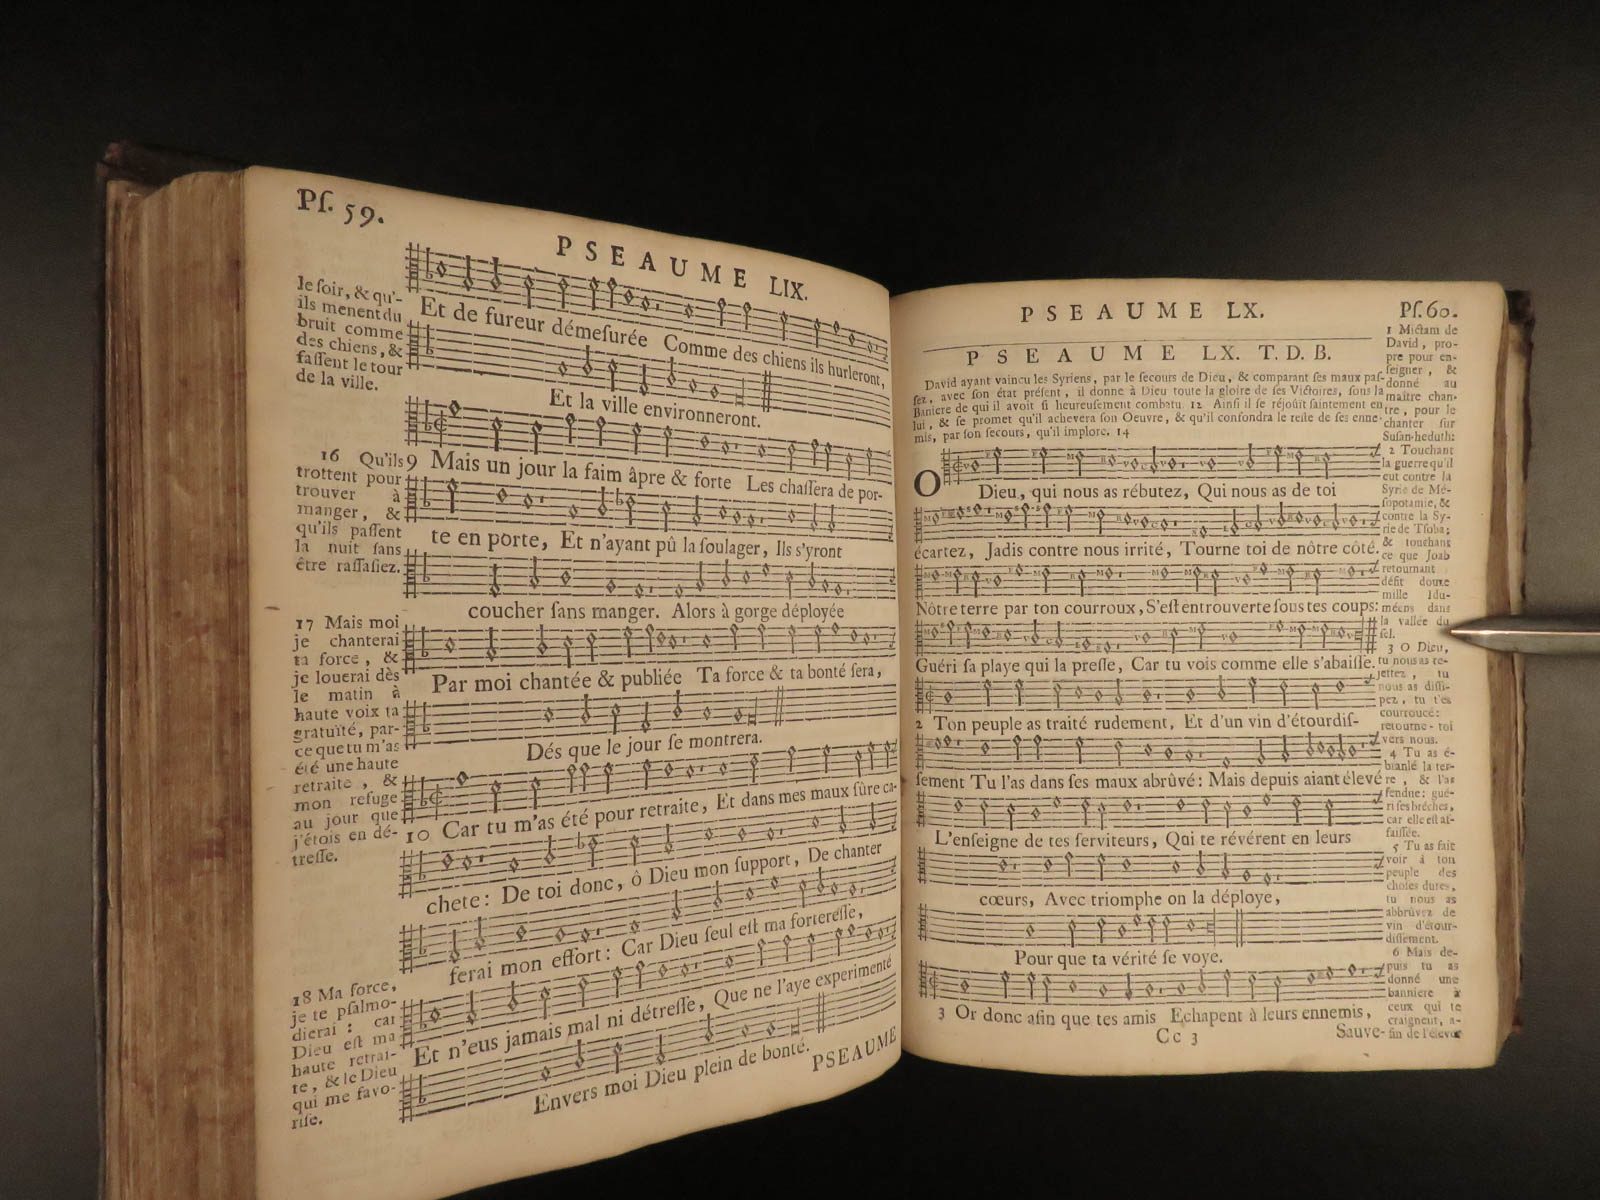 Pſ. 59.
PSEAUME LIX.
le ſoir, & qu'-
ils menent du
bruit comme
des chiens, &
faſſent le tour
de la ville.
16 Qu'ils
trottent pour
trouver à
manger, &
qu'ils paſſent
la nuit ſans
être raſſaſiez.
17 Mais moi
je chanterai
ta force, &
je louerai dès
le matin à
haute voix ta
gratuité, par-
ce que tu m'as
été une haute
retraite, &
mon refuge
au jour que
j'étois en dé-
treſſe.
18 Ma force,
je te pſalmo-
dierai: car
Dieu eſt ma
haute retrai-
te, & le Dieu
qui me favo-
riſe.
Et de fureur démeſurée Comme des chiens ils hurleront,
Et la ville environneront.
9 Mais un jour la faim âpre & forte Les chaſſera de por-
te en porte, Et n'ayant pû la ſoulager, Ils s'yront
coucher ſans manger. Alors à gorge déployée
Par moi chantée & publiée Ta force & ta bonté ſera,
Dés que le jour ſe montrera.
10 Car tu m'as été pour retraite, Et dans mes maux ſûre ca-
chete: De toi donc, ô Dieu mon ſupport, De chanter
ferai mon effort: Car Dieu ſeul eſt ma fortereſſe,
Et n'eus jamais mal ni détreſſe, Que ne l'aye experimenté
Envers moi Dieu plein de bonté.
PSEAUME
PSEAUME LX.
Pſ. 60.
PSEAUME LX. T. D. B.
David ayant vaincu les Syriens, par le ſecours de Dieu, & comparant ſes maux paſ-
ſez, avec ſon état préſent, il donne à Dieu toute la gloire de ſes Victoires, ſous la
Baniere de qui il avoit ſi heureuſement combatu. 12 Ainſi il ſe réjoüit ſaintement en
lui, & ſe promet qu'il achevera ſon Oeuvre, & qu'il confondra le reſte de ſes enne-
mis, par ſon ſecours, qu'il implore. 14
O Dieu, qui nous as rébutez, Qui nous as de toi
écartez, Jadis contre nous irrité, Tourne toi de nôtre côté.
Nôtre terre par ton courroux, S'eſt entrouverte ſous tes coups:
Guéri ſa playe qui la preſſe, Car tu vois comme elle s'abaiſſe.
2 Ton peuple as traité rudement, Et d'un vin d'étourdiſ-
ſement Tu l'as dans ſes maux abrûvé: Mais depuis aiant élevé
L'enſeigne de tes ſerviteurs, Qui te révérent en leurs
cœurs, Avec triomphe on la déploye,
Pour que ta vérité ſe voye.
3 Or donc afin que tes amis Echapent à leurs ennemis,
Cc 3
Sauve-
1 Mictam de
David, pro-
pre pour en-
ſeigner, &
donné au
maître chan-
tre, pour le
chanter ſur
Suſan-heduth:
2 Touchant
la guerre qu'il
eut contre la
Syrie de Mé-
ſopotamie, &
contre la Sy-
rie de Tſoba;
& touchant
ce que Joab
retournant
défit douze
mille Idu-
méens dans
la vallée du
ſel.
3 O Dieu,
tu nous as re-
jettez, tu
nous as diſſi-
pez, tu t'es
courroucé:
retourne-toi
vers nous.
4 Tu as é-
branlé la ter-
re, & l'as
fendue: gué-
ri ſes brêches,
car elle eſt aſ-
faiſſée.
5 Tu as fait
voir à ton
peuple des
choſes dures,
tu nous as
abbrûvez de
vin d'étour-
diſſement.
6 Mais de-
puis tu as
donné une
banniere à
ceux qui te
craignent, a-
fin de l'élever